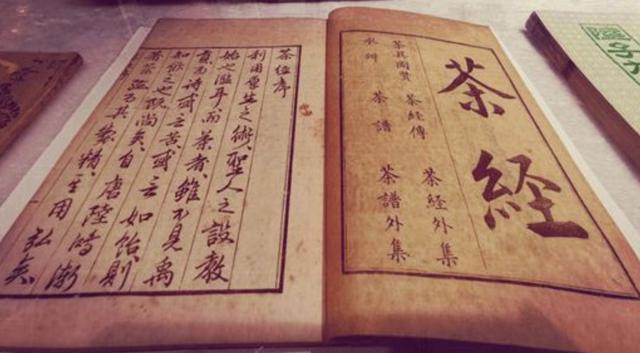 茶経
茶具圖贊 茶経傳 茶経外集
水辨 茶譜 茶譜外集
茶経序
利用厚生之術聖人之設教
始也濫耳而茶者雖不見禹
貢而詩或之苦或云如飴則
知之也既尚矣自唐陸鴻漸
著茶其製精至用弘矣